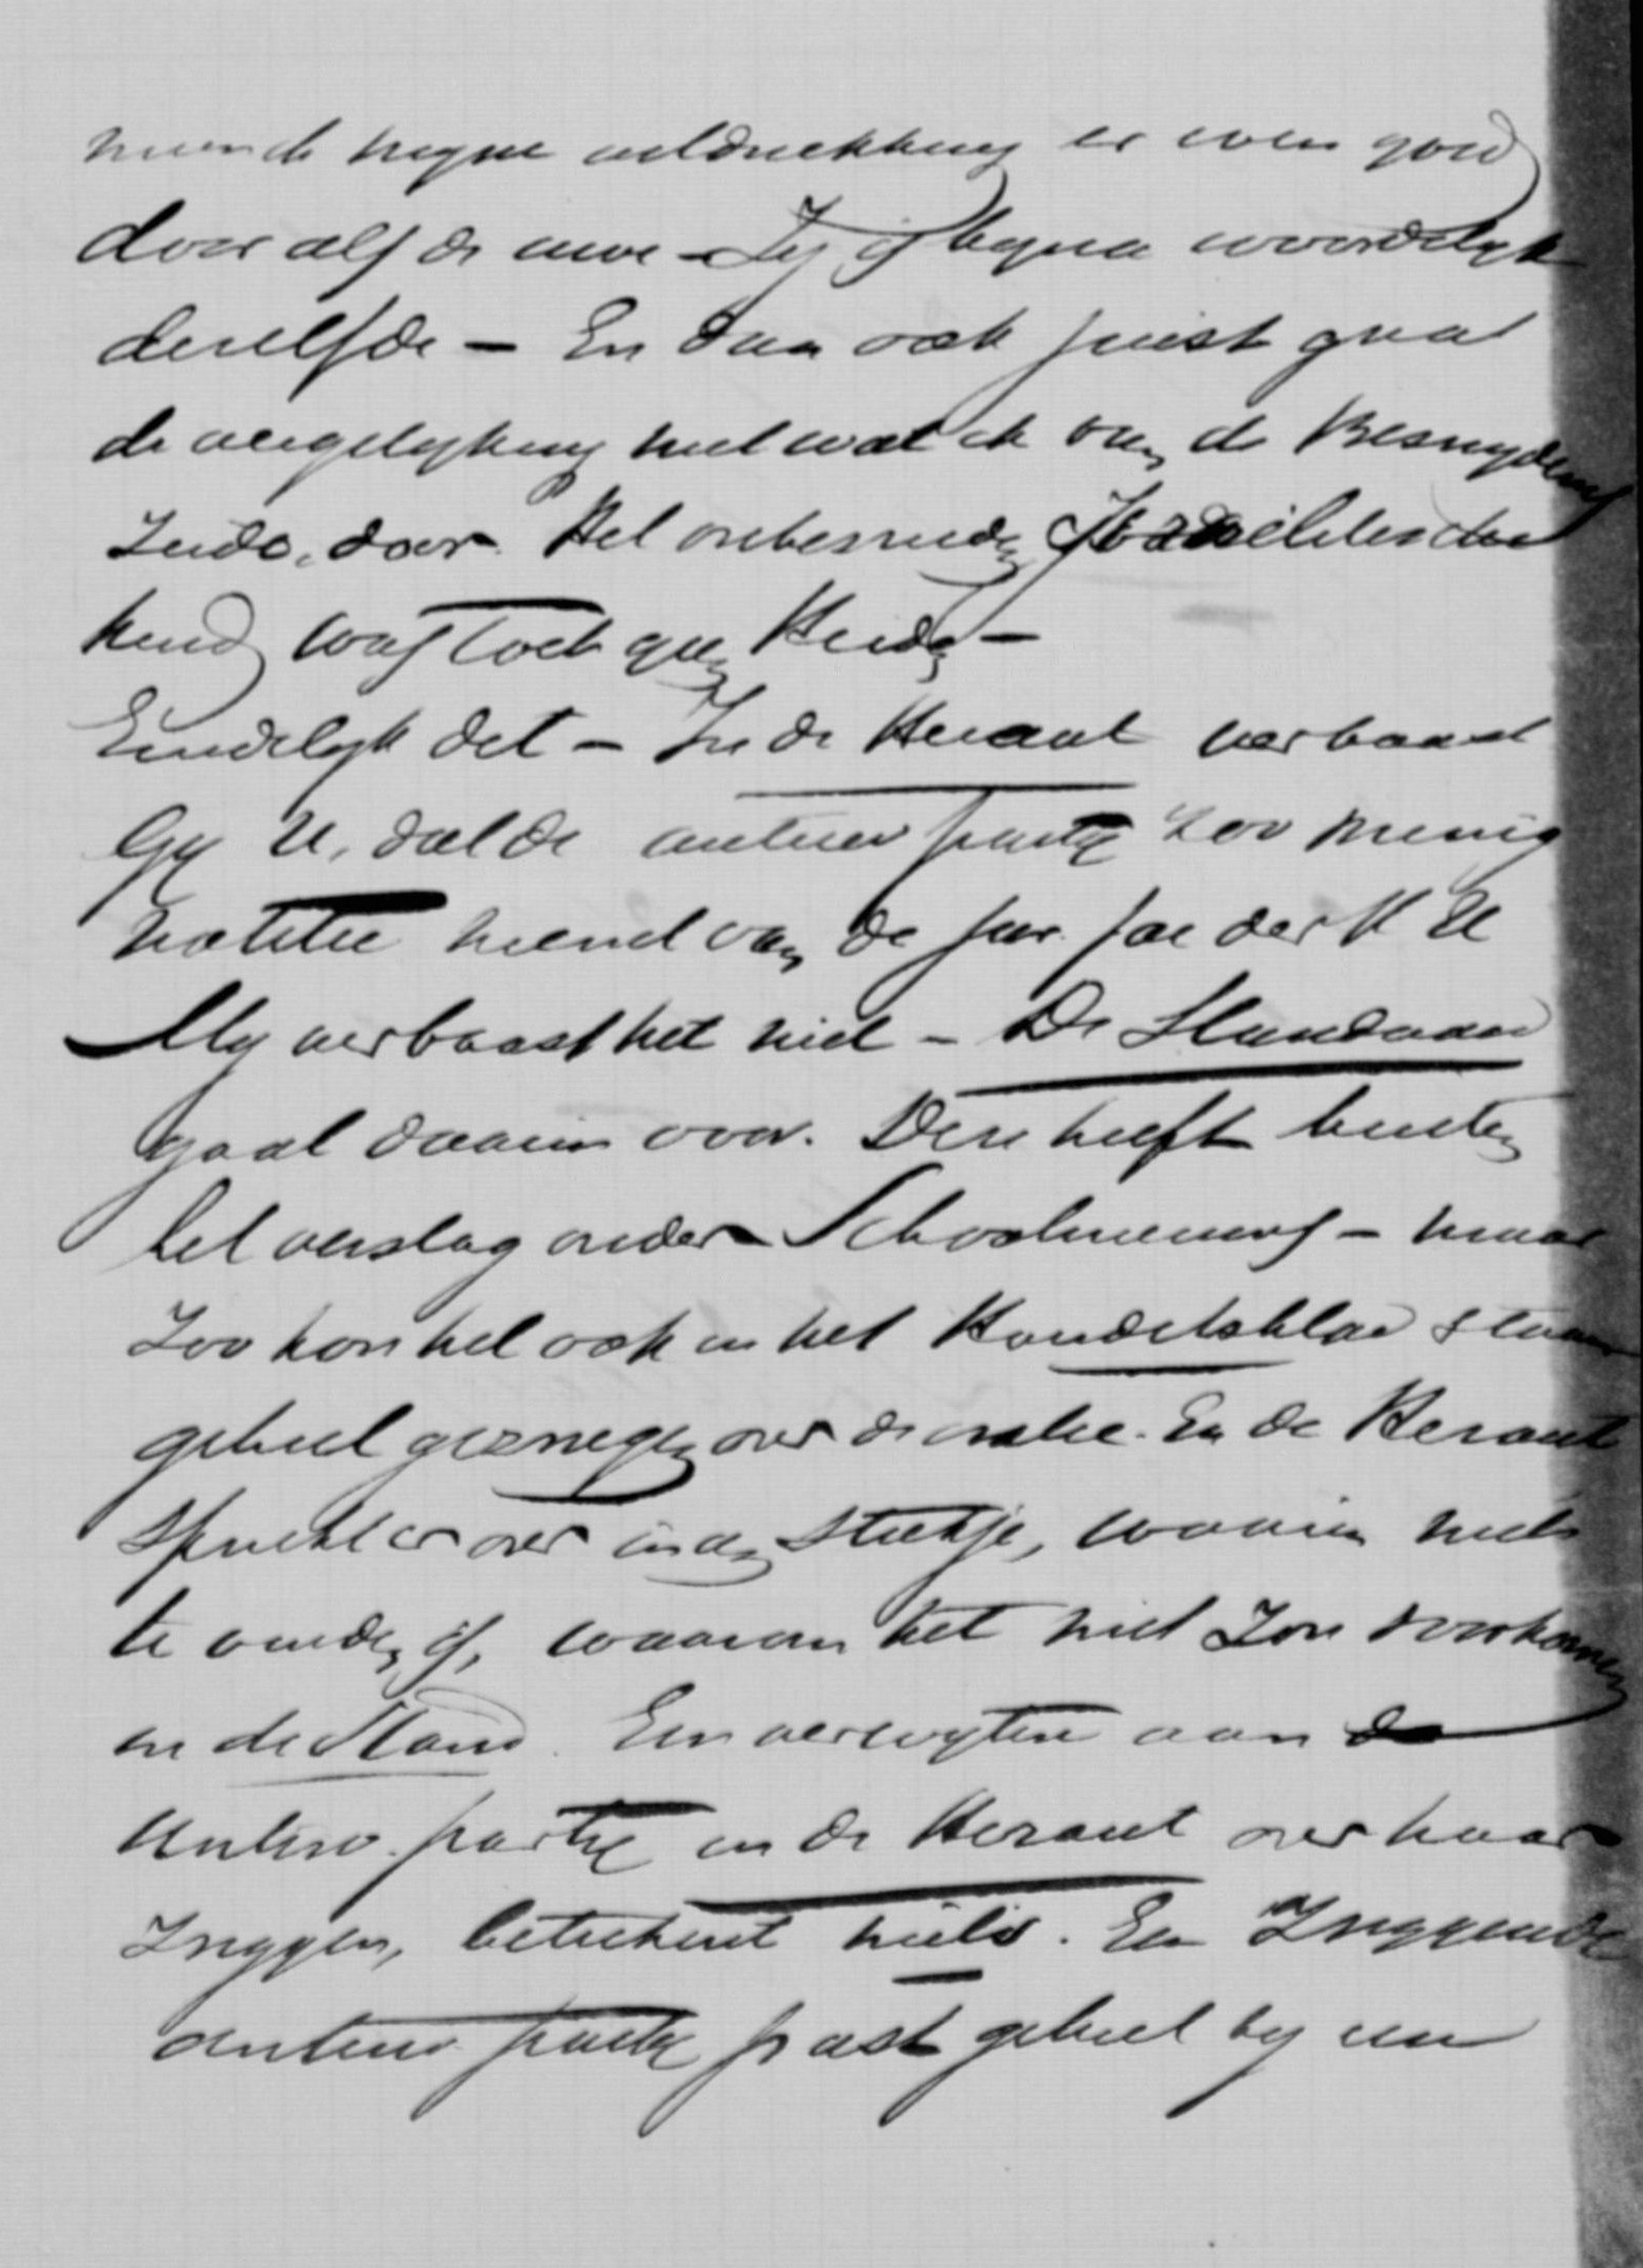 mijne uitdrukking er even goed
door als de uwe - Zij is bijna woordelijk
dezelfde - En dan ook juist gaat
de vergelijking met wat ik van de Besnijdenis
zeide, door. Het onbesneden Israelitische
kind was toch geen Heiden -
Eindelijk dit - In de Heraut verbaast
Gij U, dat de antirev partij zoo weinig
notitie neemt van de jur. fac der V U
Mij verbaast het niet - De Standaard
gaat daarin voor. Deze heeft buiten
het verslag onder Schoolnieuws - maar
zoo kon het ook in het Handelsblad staan
geheel gezwegen over de oratie. En de Heraut
spreekt er over in een stukje, waarin niets
te vinden is, waarom het niet zou voorkomen
in de Stand. Een verwijten aan de
Antirev. partij in de Heraut over haar
zwijgen, beteekent niets. Een zwijgende
antirev partij past geheel bij een